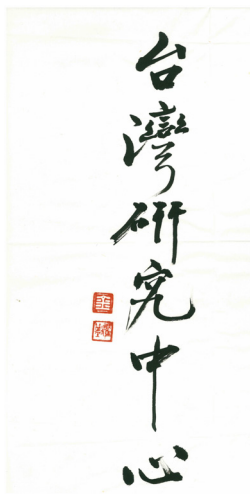 台灣研究中心